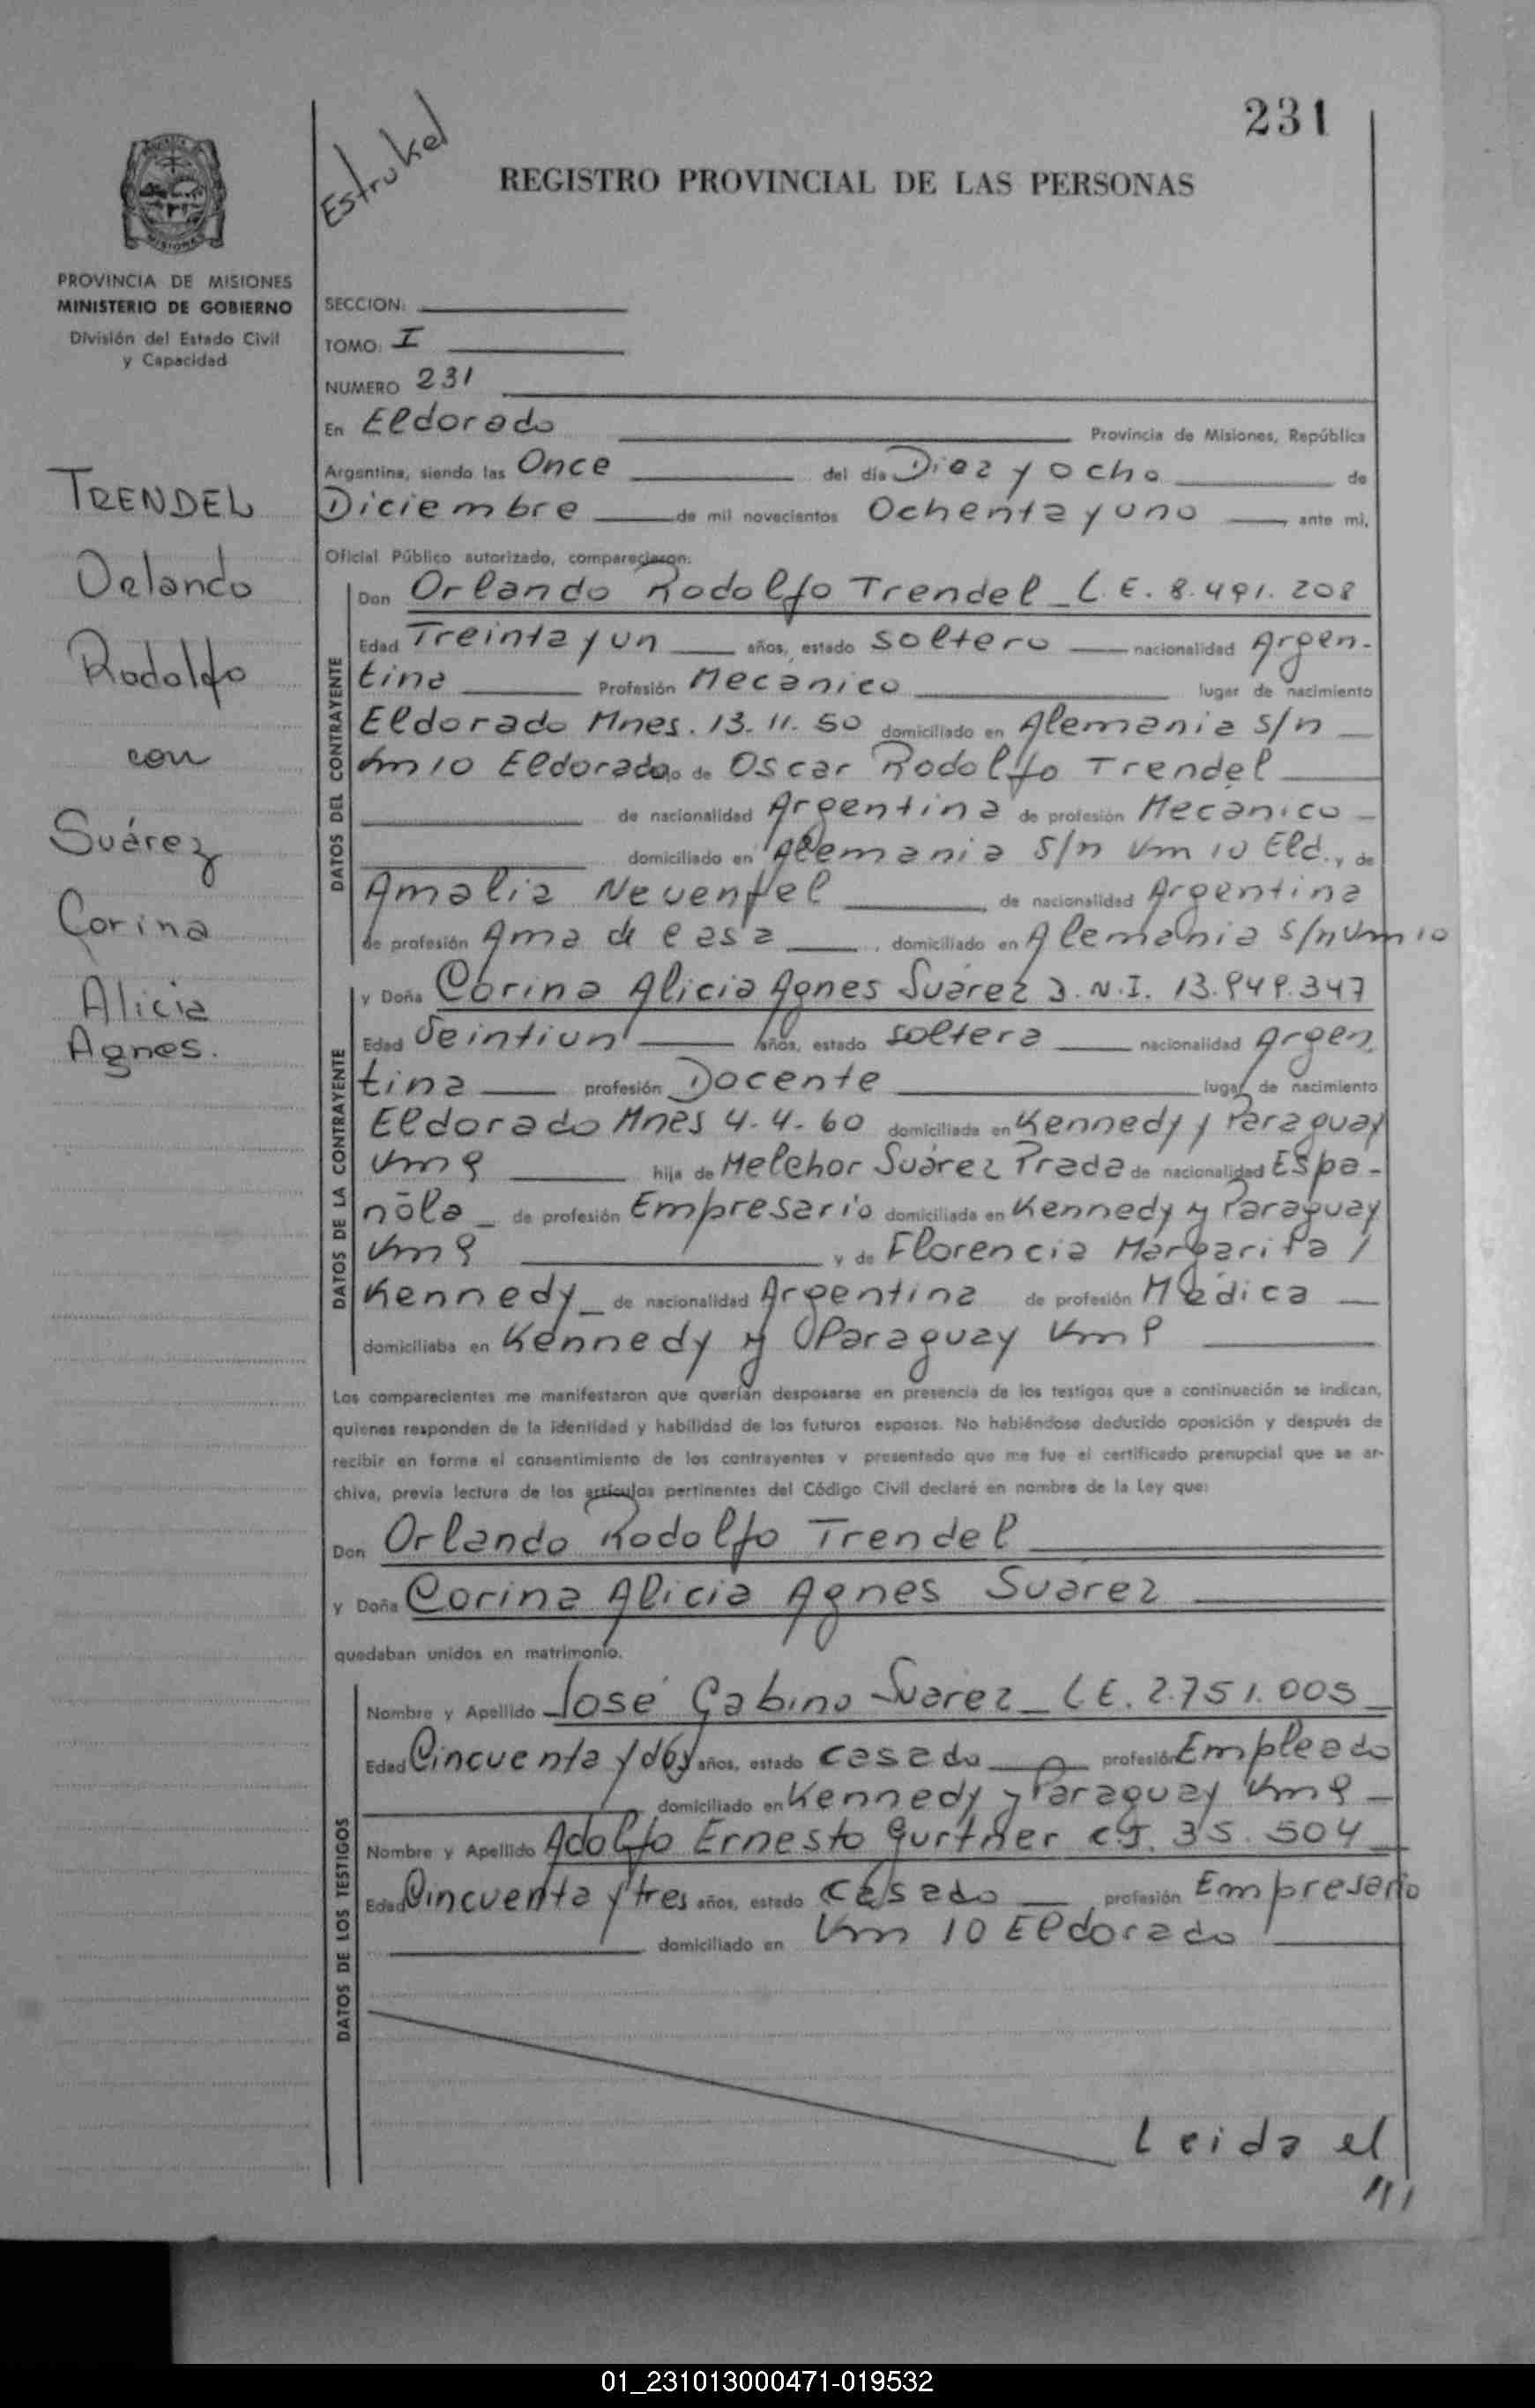 231
Estrukel
REGISTRO PROVINCIAL DE LAS PERSONAS
MISIONES
PROVINCIA DE MISIONES
MINISTERIO DE GOBIERNO
División del Estado Civil
y Capacidad
TRENDEL
Orlando
Rodolfo
con
Suárez
Corina
Alicia
Agnes.
SECCION:
TOMO: I
NUMERO 231
En Eldorado Provincia de Misiones, República
Argentina, siendo las Once del día Diez y ocho de
Diciembre de mil novecientos Ochenta y uno ante mi,
Oficial Público autorizado, comparecieron:
DATOS DEL CONTRAYENTE
Don Orlando Rodolfo Trendel L.E. 8.491.208
Edad Treinta y un años, estado soltero nacionalidad Argen-
tina Profesión Mecánico lugar de nacimiento
Eldorado Mnes. 13-11-50 domiciliado en Alemania s/n
Km 10 Eldorado de Oscar Rodolfo Trendel
de nacionalidad Argentina de profesión Mecánico
domiciliado en Alemania s/n Km 10 Eld., de
Amalia Neuenfel de nacionalidad Argentina
de profesión Ama de casa, domiciliado en Alemania s/n Km 10
DATOS DE LA CONTRAYENTE
y Doña Corina Alicia Agnes Suárez D.N.I. 13.949.347
Edad Veintiun años, estado soltera nacionalidad Argen
tina profesión Docente lugar de nacimiento
Eldorado Mnes 4-4-60 domiciliada en Kennedy y Paraguay
Km 9 hija de Melchor Suárez Prada de nacionalidad Espa-
ñola de profesión Empresario domiciliada en Kennedy y Paraguay
Km 9 y de Florencia Margarita /
Kennedy de nacionalidad Argentina de profesión Médica
domiciliaba en Kennedy y Paraguay Km 9
Los comparecientes me manifestaron que querían desposarse en presencia de los testigos que a continuación se indican,
quienes responden de la identidad y habilidad de los futuros esposos. No habiéndose deducido oposición y después de
recibir en forma el consentimiento de los contrayentes y presentado que me fue el certificado prenupcial que se ar-
chiva, previa lectura de los artículos pertinentes del Código Civil declaré en nombre de la Ley que:
Don Orlando Rodolfo Trendel
y Doña Corina Alicia Agnes Suarez
quedaban unidos en matrimonio.
DATOS DE LOS TESTIGOS
Nombre y Apellido José Gabino Suarez L.E. 2.751.005
Edad Cincuenta y dos años, estado casado profesión Empleado
domiciliado en Kennedy y Paraguay Km 9
Nombre y Apellido Adolfo Ernesto Gurtner C.I. 35.504
Edad Cincuenta y tres años, estado Casado profesión Empresario
domiciliado en Km 10 Eldorado
Leida el
///
01_231013000471-019532